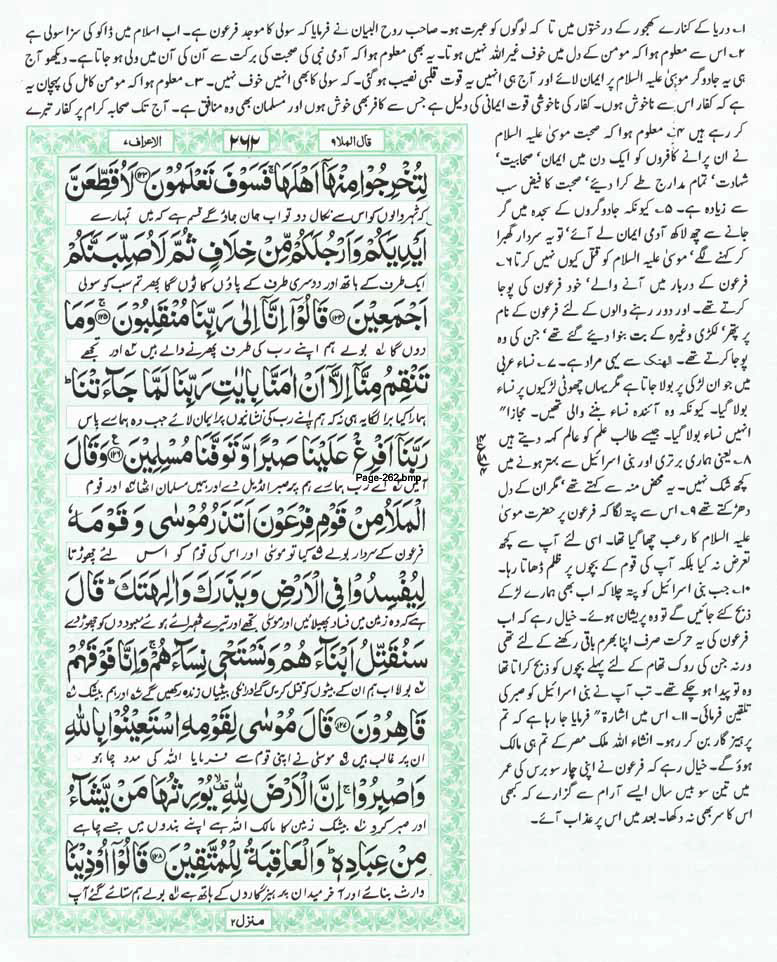 ۱۔ دریا کے کنارے کھجور کے درختوں میں تا کہ لوگوں کو عبرت ہو۔ صاحب روح البیان نے فرمایا کہ سولی کا موجد فرعون ہے۔ اب اسلام میں ڈاکو کی سزا سولی ہے
۲۔ اس سے معلوم ہوا کہ مومن کے دل میں خوف غیر اللہ نہیں ہوتا۔ یہ بھی معلوم ہوا کہ آدمی نبی کی صحبت کی برکت سے آن کی آن میں ولی ہو جاتا ہے۔ دیکھو آج
ہی یہ جادوگر موسیٰ علیہ السلام پر ایمان لائے اور آج ہی انہیں یہ قوت قلبی نصیب ہو گئی۔ کہ سولی کا بھی انہیں خوف نہیں۔ ۳۔ معلوم ہوا کہ مومن کامل کی پہچان یہ
ہے کہ کفار اس سے ناخوش ہوں۔ کفار کی ناخوشی قوت ایمانی کی دلیل ہے جس سے کافر بھی خوش ہوں اور مسلمان بھی وہ منافق ہے۔ آج تک صحابہ کرام پر کفار تبرے
کر رہے ہیں ۴۔ معلوم ہوا کہ صحبت موسیٰ علیہ السلام
نے ان پرانے کافروں کو ایک دن میں ایمان' صحابیت'
شہادت' تمام مدارج طے کرا دیئے' صحبت کا فیض سب
سے زیادہ ہے۔ ۵۔ کیونکہ جادوگروں کے سجدہ میں گر
جانے سے چھ لاکھ آدمی ایمان لے آئے' تو یہ سردار گھبرا
کر کہنے لگے' موسیٰ علیہ السلام کو قتل کیوں نہیں کرتا ۶۔
فرعون کے دربار میں آنے والے' خود فرعون کی پوجا
کرتے تھے۔ اور دور رہنے والوں کے لئے فرعون کے نام
پر پتھر' لکڑی وغیرہ کے بت بنوا دیئے گئے تھے' جن کی وہ
پوجا کرتے تھے۔ الھتک سے یہی مراد ہے۔ ۷۔ نساء عربی
میں جو ان لڑکی پر بولا جاتا ہے مگر یہاں چھوٹی لڑکیوں پر نساء
بولا گیا۔ کیونکہ وہ آئندہ نساء بننے والی تھیں۔ مجازا"
انہیں نساء بولا گیا۔ جیسے طالب علم کو عالم کہہ دیتے ہیں
۸۔ یعنی ہماری برتری اور بنی اسرائیل سے بہتر ہونے میں
کچھ شک نہیں۔ یہ محض منہ سے کہتے تھے' مگر ان کے دل
دھڑکتے تھے ۹۔ اس سے پتہ لگا کہ فرعون پر حضرت موسیٰ
علیہ السلام کا رعب چھا گیا تھا۔ اسی لئے آپ سے کچھ
تعرض نہ کیا بلکہ آپ کی قوم کے بچوں پر ظلم ڈھاتا رہا۔
۱۰۔ جب بنی اسرائیل کو پتہ چلا کہ اب بھی ہمارے لڑکے
ذبح کئے جائیں گے تو وہ پریشان ہوئے۔ خیال رہے کہ اب
فرعون کی یہ حرکت صرف اپنا بھرم باقی رکھنے کے لئے تھی
ورنہ جن کی روک تھام کے لئے پہلے بچوں کو ذبح کراتا تھا
وہ تو پیدا ہو چکے تھے۔ تب آپ نے بنی اسرائیل کو صبر کی
تلقین فرمائی۔ ۱۱۔ اس میں اشارۃ" فرمایا جا رہا ہے کہ تم
پرہیز گار بن کر رہو۔ انشاء اللہ ملک مصر کے تم ہی مالک
ہوؤ گے۔ خیال رہے کہ فرعون نے اپنی چار سو برس کی عمر
میں تین سو بیس سال ایسے آرام سے گزارے کہ کبھی
اس کا سر بھی نہ دکھا۔ بعد میں اس پر عذاب آئے۔
قال الملا۹ ۲۶۲ الاعراف۷
لِتُخْرِجُوْا مِنْهَاۤ اَهْلَهَا ۚ فَسَوْفَ تَعْلَمُوْنَ ﴿۱۲۳﴾ لَاُقَطِّعَنَّ
کہ شہر والوں کو اس سے نکال دو تو اب جان جاؤ گے قسم ہے کہ میں تمہارے
اَیْدِیَكُمْ وَ اَرْجُلَكُمْ مِّنْ خِلَافٍ ثُمَّ لَاُصَلِّبَنَّكُمْ
ایک طرف کے ہاتھ اور دوسری طرف کے پاؤں کاٹوں گا پھر تم سب کو سولی
اَجْمَعِیْنَ ﴿۱۲۴﴾ قَالُوْۤا اِنَّاۤ اِلٰى رَبِّنَا مُنْقَلِبُوْنَ ﴿۱۲۵﴾ وَ مَا
دوں گا لہ بولے ہم اپنے رب کی طرف پھرنے والے ہیں ۲ اور تجھے
تَنْقِمُ مِنَّاۤ اِلَّاۤ اَنْ اٰمَنَّا بِاٰیٰتِ رَبِّنَا لَمَّا جَآءَتْنَا ؕ
ہمارا کیا برا لگا یہی نہ کہ ہم اپنے رب کی نشانیوں پر ایمان لائے جب وہ ہمارے پاس
رَبَّنَاۤ اَفْرِغْ عَلَیْنَا صَبْرًا وَّ تَوَفَّنَا مُسْلِمِیْنَ ﴿۱۲۶﴾ وَ قَالَ
آئیں ۳ اے رب ہمارے ہم پر صبر انڈیل دے اور ہمیں مسلمان اٹھا ۴ اور قوم
Page-262.bmp
الْمَلَاُ مِنْ قَوْمِ فِرْعَوْنَ اَتَذَرُ مُوْسٰى وَ قَوْمَهٗ
فرعون کے سردار بولے ۵ کیا تو موسیٰ اور اس کی قوم کو اس لئے چھوڑتا
لِیُفْسِدُوْا فِی الْاَرْضِ وَ یَذَرَكَ وَ اٰلِهَتَكَ ؕ قَالَ
ہے کہ وہ زمین میں فساد پھیلائیں اور موسیٰ تجھے اور تیرے ٹھہرائے ہوئے معبودوں کو چھوڑ دے
سَنُقَتِّلُ اَبْنَآءَهُمْ وَ نَسْتَحْیٖ نِسَآءَهُمْ ۚ وَ اِنَّا فَوْقَهُمْ
۶ بولا اب ہم ان کے بیٹوں کو قتل کریں گے اور انکی بیٹیاں زندہ رکھیں گے ۷ اور ہم بیشک
قٰهِرُوْنَ ﴿۱۲۷﴾ قَالَ مُوْسٰى لِقَوْمِهِ اسْتَعِیْنُوْا بِاللّٰهِ
ان پر غالب ہیں ۸ موسیٰ نے اپنی قوم سے فرمایا اللہ کی مدد چاہو
وَ اصْبِرُوْا ۚ اِنَّ الْاَرْضَ لِلّٰهِ ۙ یُوْرِثُهَا مَنْ یَّشَآءُ
اور صبر کرو ۱۰ بیشک زمین کا مالک اللہ ہے اپنے بندوں میں جسے چاہے
مِنْ عِبَادِهٖ ؕ وَ الْعَاقِبَةُ لِلْمُتَّقِیْنَ ﴿۱۲۸﴾ قَالُوْۤا اُوْذِیْنَا
وارث بنائے اور آخر میدان پرہیزگاروں کے ہاتھ ہے ۱۱ بولے ہم ستائے گئے آپ
منزل۲